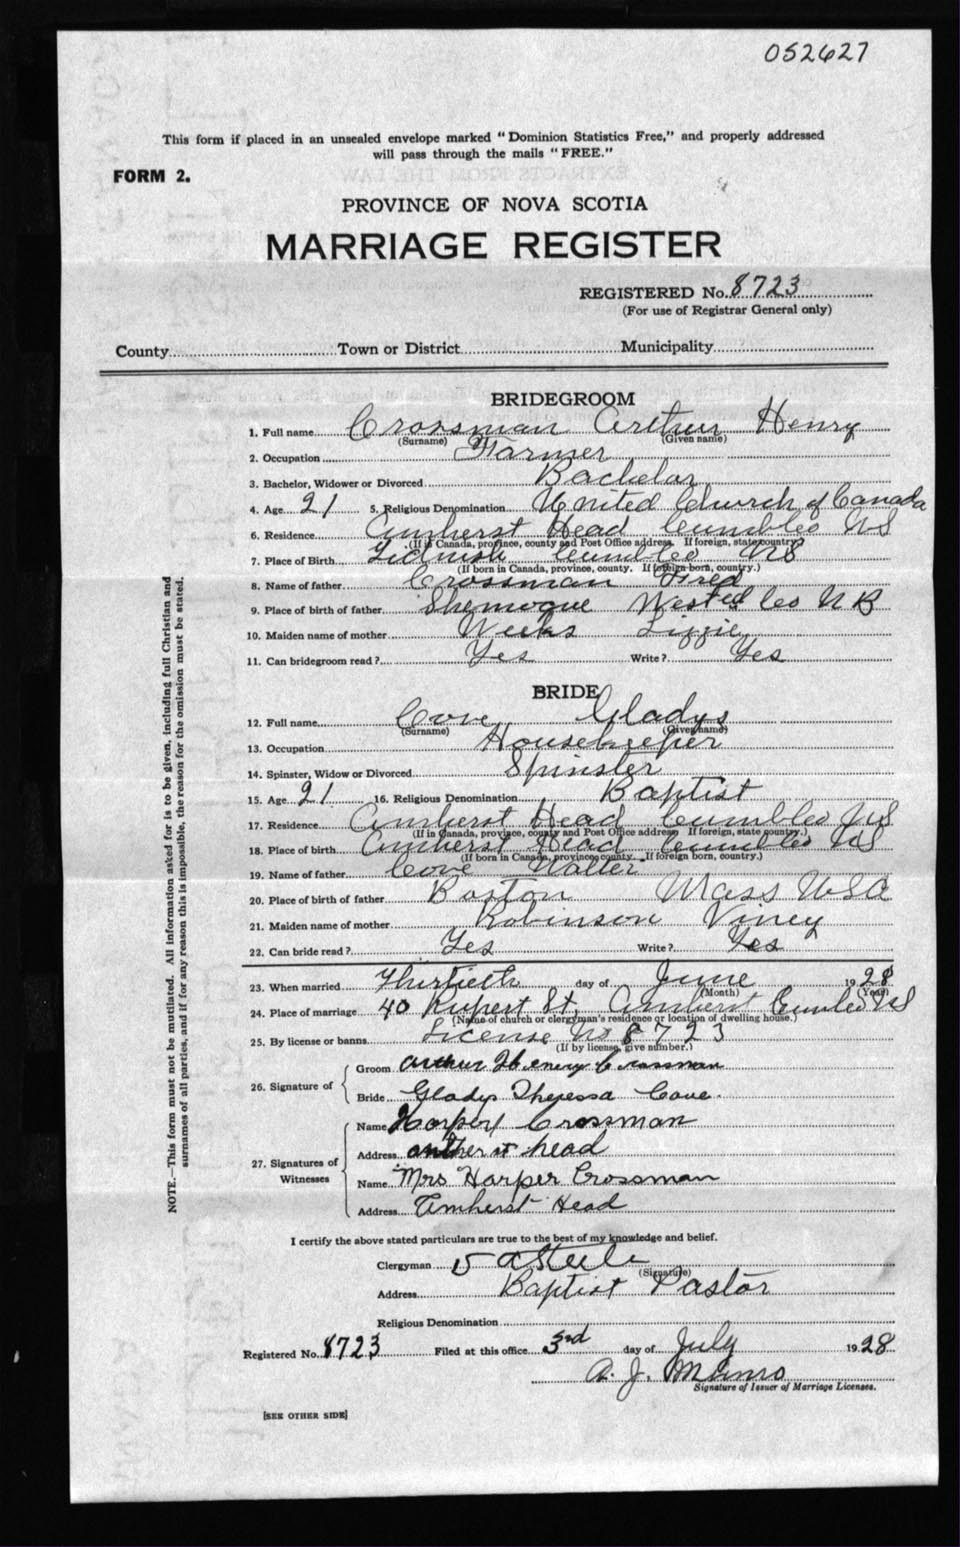 052627
This form if placed in an unsealed envelope marked "Dominion Statistics Free," and properly addressed
will pass through the mails "FREE."
FORM 2.
PROVINCE OF NOVA SCOTIA
MARRIAGE REGISTER
REGISTERED No. 8723
(For use of Registrar General only)
County Town or District Municipality
BRIDEGROOM
1. Full name Crossman Arthur Henry
(Surname) (Given name)
2. Occupation Farmer
3. Bachelor, Widower or Divorced Bachelor
4. Age 21 5. Religious Denomination United Church of Canada
6. Residence Amherst Head Cumb Co NS
(If in Canada, province, county and Post Office address. If foreign, state country)
7. Place of Birth Tidnish Cumb Co NS
(If born in Canada, province, county. If foreign born, country.)
8. Name of father Crossman Fred
9. Place of birth of father Shemogue West Co NB
10. Maiden name of mother Weeks Lizzie
11. Can bridegroom read? Yes Write? Yes
BRIDE
12. Full name Cove Gladys
(Surname) (Given name)
13. Occupation Housekeeper
14. Spinster, Widow or Divorced Spinster
15. Age 21 16. Religious Denomination Baptist
17. Residence Amherst Head Cumb Co NS
(If in Canada, province, county and Post Office address If foreign, state country.)
18. Place of birth Amherst Head Cumb Co NS
(If born in Canada, province county. If foreign born, country.)
19. Name of father Cove Walter
20. Place of birth of father Boston Mass USA
21. Maiden name of mother Robinson Viney
22. Can bride read? Yes Write? Yes
23. When married Thirtieth day of June 1928
(Month) (Year)
24. Place of marriage 40 Rupert St, Amherst Cumb Co NS
(Name of church or clergyman's residence or location of dwelling house.)
25. By license or banns License No 8723
(If by license, give number.)
26. Signature of
Groom Arthur Henery Crossman
Bride Gladys Theressa Cove.
27. Signatures of Witnesses
Name Harper Crossman
Address Amherst head
Name Mrs Harper Crossman
Address Amherst Head
I certify the above stated particulars are true to the best of my knowledge and belief.
Clergyman Steele
(Signature)
Address Baptist Pastor
Religious Denomination
Registered No. 8723 Filed at this office 3rd day of July 1928
A. J. Munro
Signature of Issuer of Marriage Licenses.
[SEE OTHER SIDE]
NOTE.—This form must not be mutilated. All information asked for is to be given, including full Christian and
surnames of all parties, and if for any reason this is impossible, the reason for the omission must be stated.